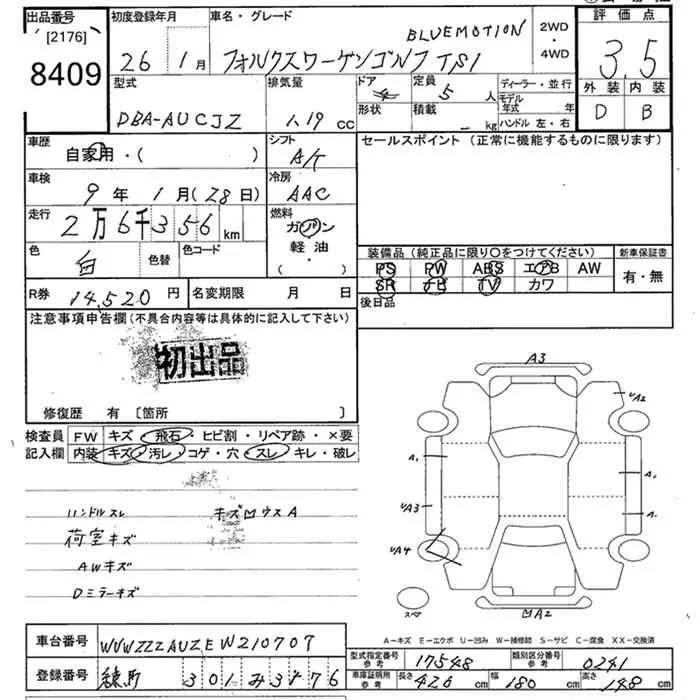 出品番号 初度登録年月 車名・グレード 評価点
[2176] BLUEMOTION 2WD
8409 26年 1月 フォルクスワーゲンゴルフ TSI ・4WD 3.5
型式 排気量 ドア 定員 ディーラー・並行 外装 内装
DBA-AUCJZ 1.19 cc 4 5人 モデル年式 年 D B
形状 積載 - kg ハンドル 左・右
車歴 シフト セールスポイント (正常に機能するものに限ります)
自家用・( ) A/T
車検 冷房
9年 1月(28日) AAC
走行 燃料
2万6千356km ガソリン
色 色替 色コード 軽油 装備品(純正品に限り○をつけてください) 新車保証書
白 (・ ) PS PW ABS エアB AW 有・無
R券 14,520円 名変期限 月 日 SR ナビ TV カワ
後日品
注意事項申告欄(不具合内容等は具体的に記入して下さい)
初出品
修復歴 有 〔箇所 〕
検査員 FW キズ・飛石・ヒビ割・リペア跡・×要
記入欄 内装 キズ・汚レ・コゲ・穴・スレ・キレ・破レ
ハンドルスレ キズ凹ウスA
荷室キズ
AWキズ
Dミラーキズ
A3
UA2
A1 A1
UA3 A1
UA4
スペア 凹A2
A-キズ E-エクボ U-凹み W-補修跡 S-サビ C-腐食 XX-交換済
車台番号 WVWZZZAUZEW210707
登録番号 練馬 301 み 3476
型式指定番号 参考 17548 類別区分番号 参考 0241
車庫証明用 参考 長さ 426cm 幅 180cm 高さ 148cm